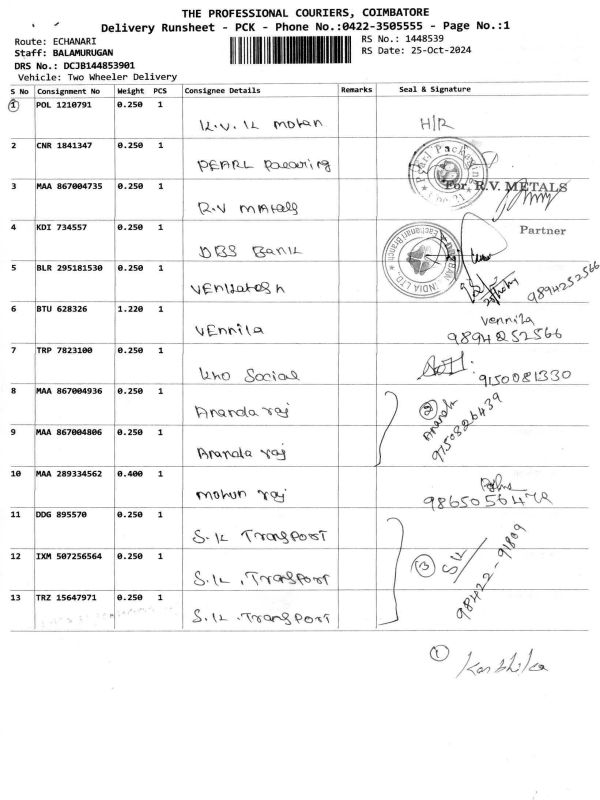 THE PROFESSIONAL COURIERS, COIMBATORE
Delivery Runsheet - PCK - Phone No.:0422-3505555 - Page No.:1
Route: ECHANARI
RS No.: 1448539
Staff: BALAMURUGAN
RS Date: 25-Oct-2024
DRS No.: DCJB144853901
Vehicle: Two Wheeler Delivery
S No Consignment No Weight PCS Consignee Details Remarks Seal & Signature
1 POL 1210791 0.250 1 K.V.K Mohan H/R
2 CNR 1841347 0.250 1 PEARL Pacaring
Pearl Packaging
3 MAA 867004735 0.250 1 R.V Metals
For, R.V. METALS
Partner
4 KDI 734557 0.250 1 DBS Bank
BANK INDIA LTD
Eachanari Branch
5 BLR 295181530 0.250 1 Venkatesh
9894252566
6 BTU 628326 1.220 1 Vennila Vennila
9894252566
7 TRP 7823100 0.250 1 Kho Social 9150081330
8 MAA 867004936 0.250 1 Ananda raj
2 Ananda
9750826439
9 MAA 867004806 0.250 1 Ananda raj
10 MAA 289334562 0.400 1 Mohun raj
11 DDG 895570 0.250 1 S.K Transport
12 IXM 507256564 0.250 1 S.K. Transport
3 S.K
98422-91809
13 TRZ 15647971 0.250 1 S.K. Transport
1